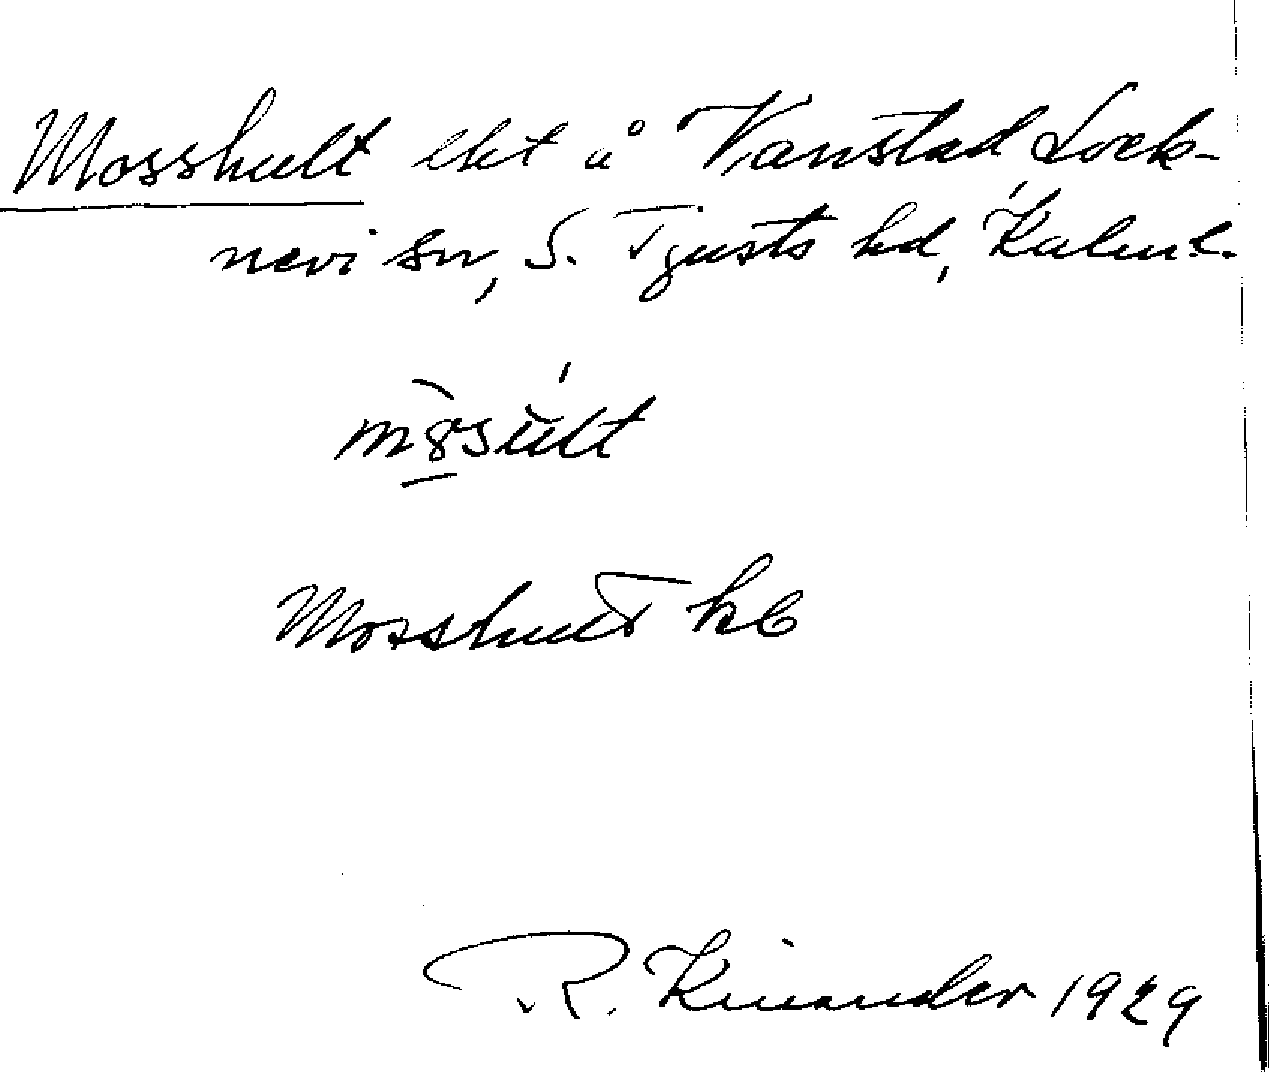 Mosshult lht å Vanstad Lock-
nevi sn, S. Tjusts hd, Kalm. l.
Mosshult kb
R. Kinander 1929